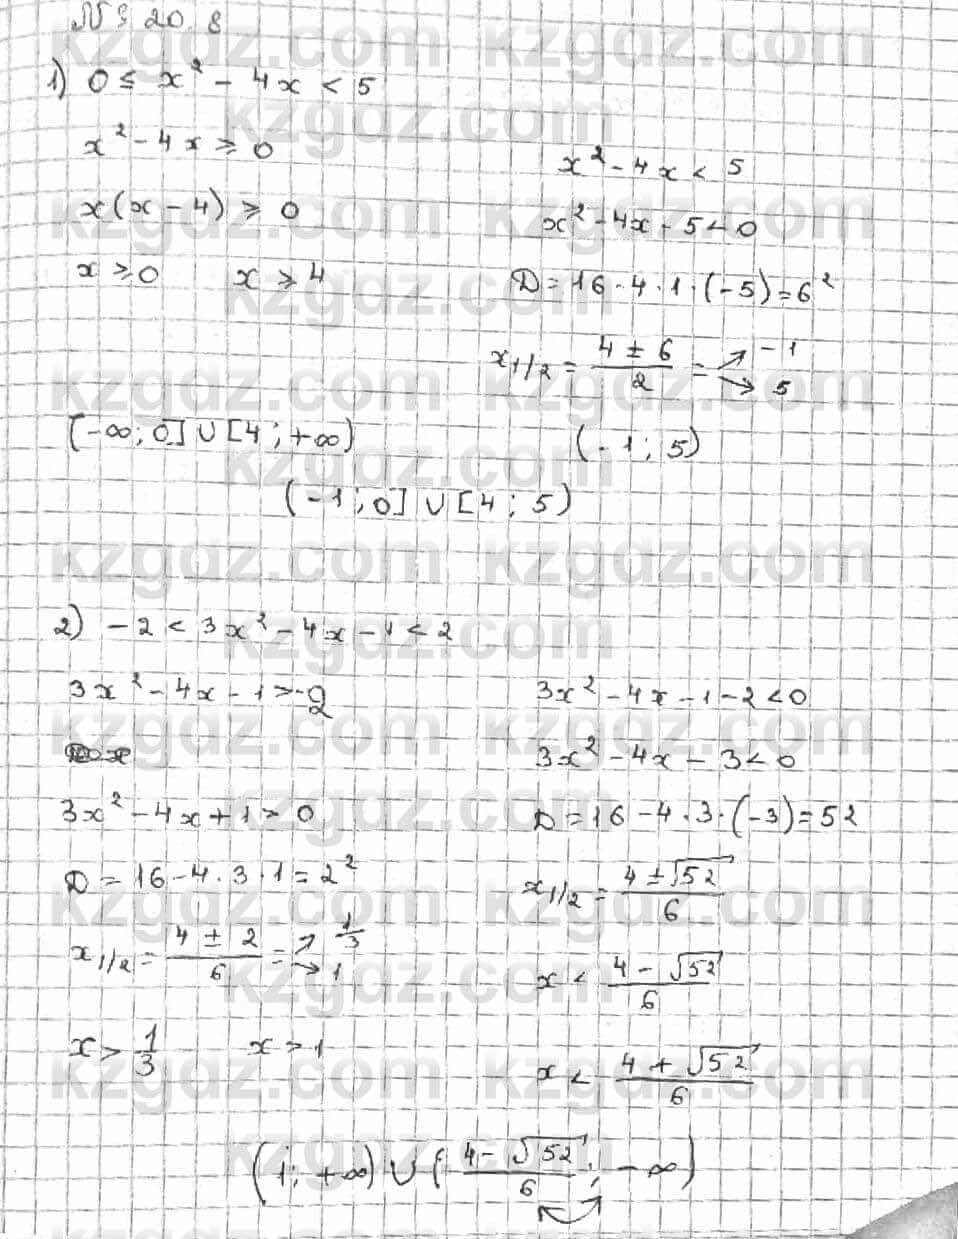 № 20.8
1) 0 ≤ x² - 4x < 5
x² - 4x ≥ 0
x(x - 4) ≥ 0
x ≥ 0 x ≥ 4
[-∞; 0] ∪ [4; +∞)
x² - 4x < 5
x² - 4x - 5 < 0
D = 16 - 4 · 1 · (-5) = 6²
x₁/₂ = (4 ± 6)/2 = ↗ -1 ↘ 5
(-1; 5)
(-1; 0] ∪ [4; 5)
2) -2 < 3x² - 4x - 1 < 2
3x² - 4x - 1 > -2
3x² - 4x + 1 > 0
D = 16 - 4 · 3 · 1 = 2²
x₁/₂ = (4 ± 2)/6 = ↗ 1/3 ↘ 1
x > 1/3 x > 1
3x² - 4x - 1 - 2 < 0
3x² - 4x - 3 < 0
D = 16 - 4 · 3 · (-3) = 52
x₁/₂ = (4 ± √52)/6
x < (4 - √52)/6
x < (4 + √52)/6
(1; +∞) ∪ ((4 - √52)/6; -∞)
kzgdz.com